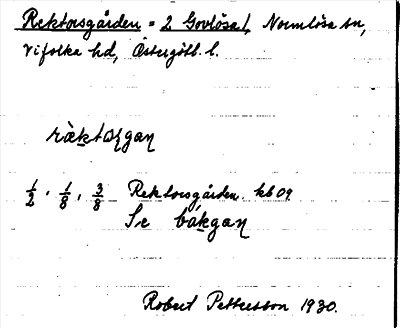 Rektorsgården = 2 Govlösa /, Normlösa sn,
Vifolka hd, Östergötl. l.
ràktorgan
1/2, 1/8, 3/8 Rektorsgården. kb 09
Se bákgan
Robert Pettersson 1930.